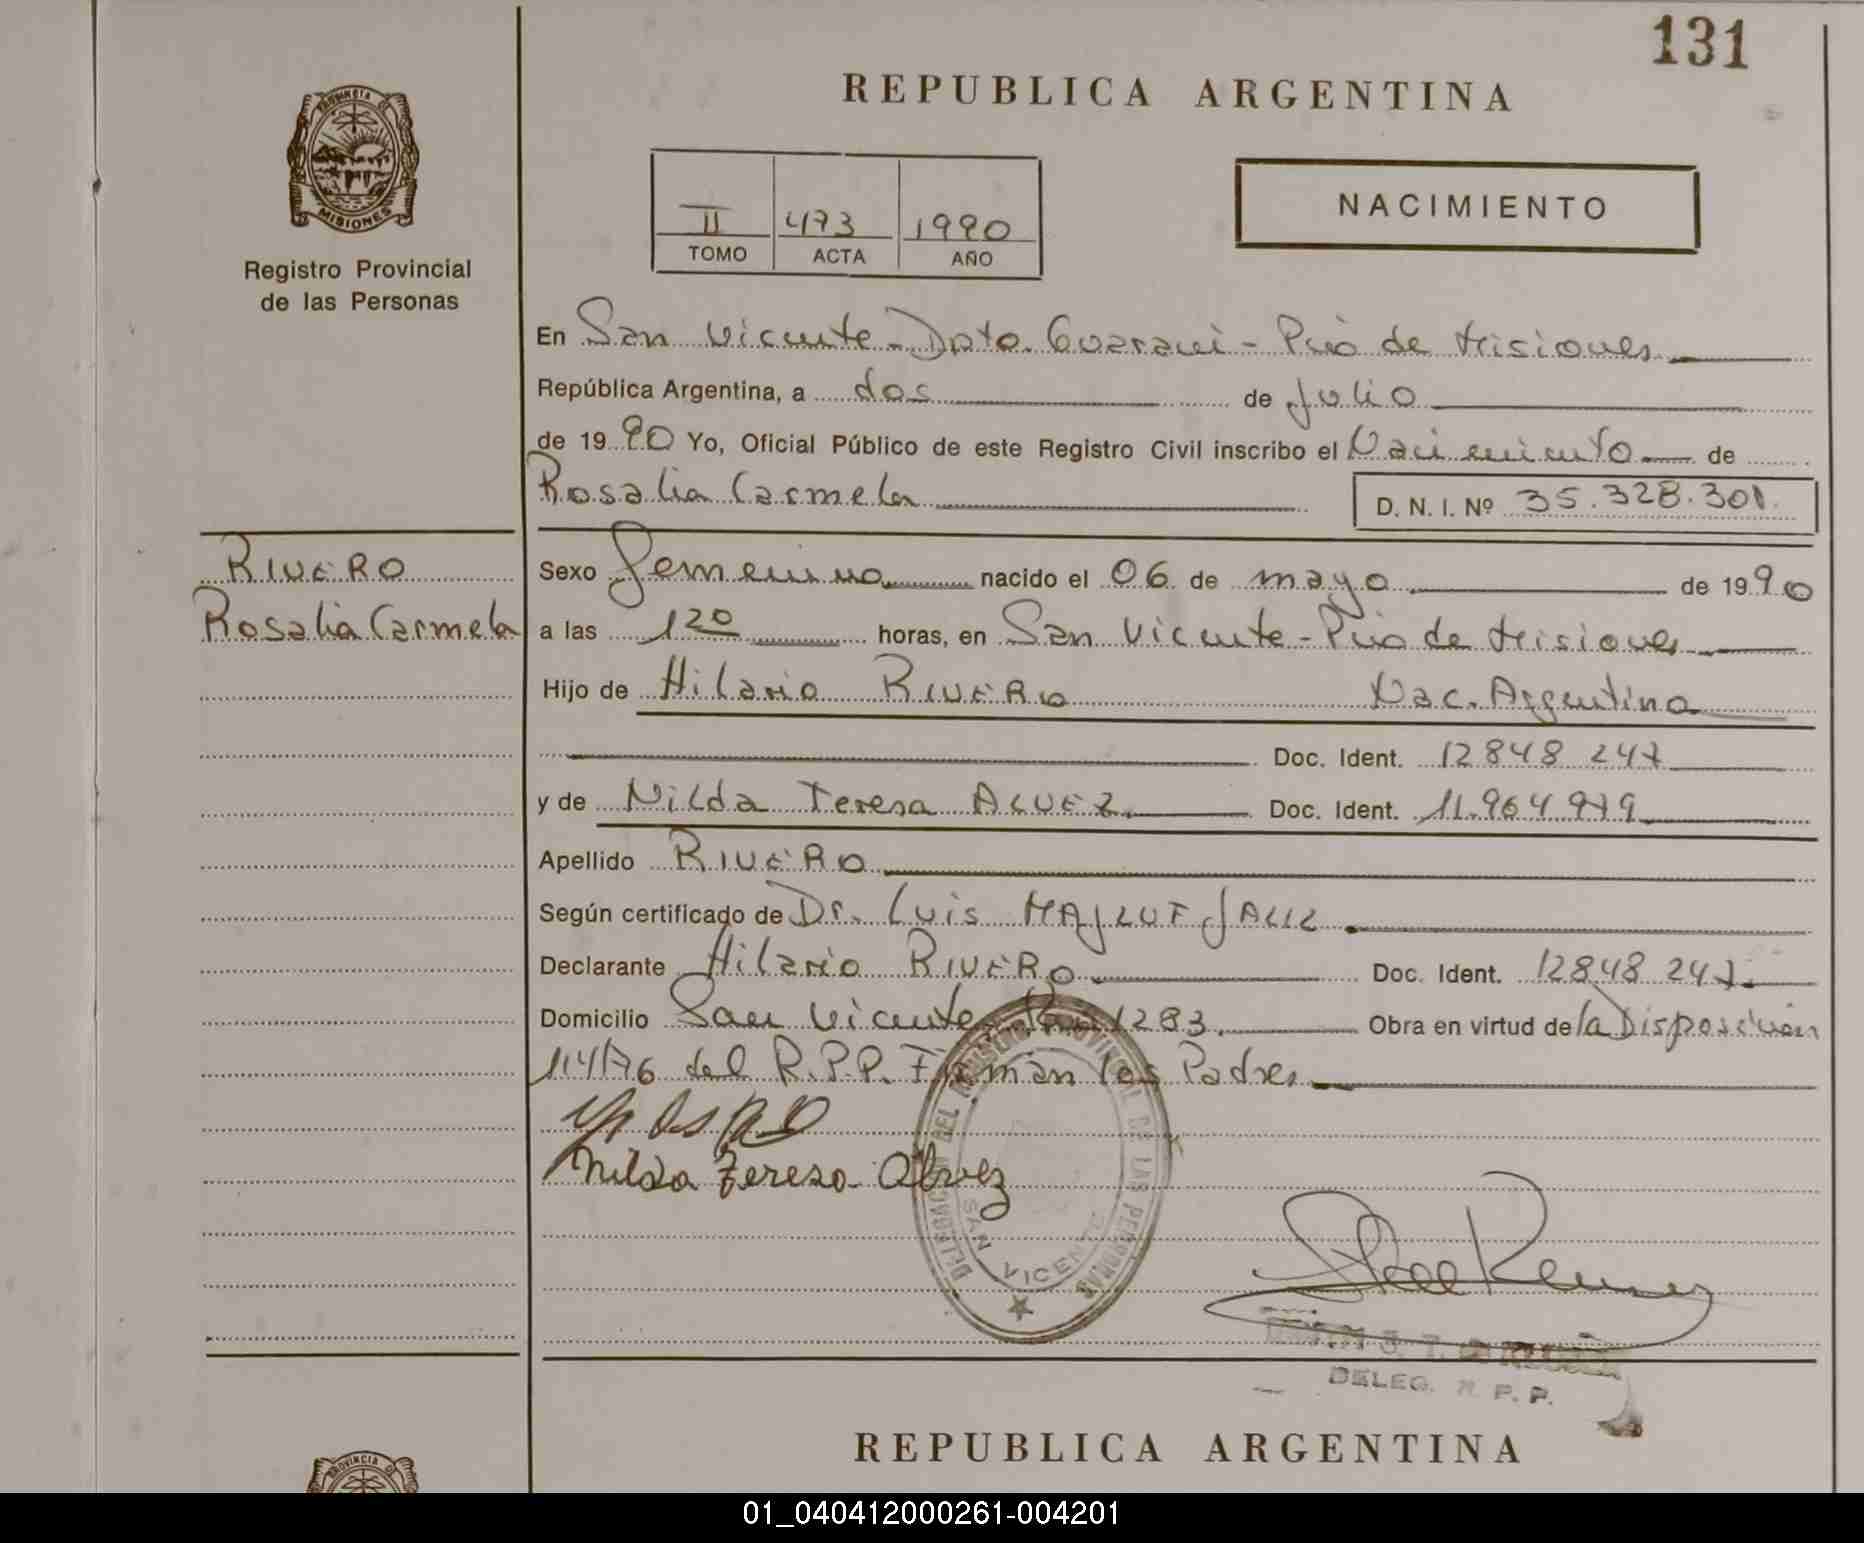 131
REPUBLICA ARGENTINA
PROVINCIA DE
MISIONES
Registro Provincial
de las Personas
II 473 1990
TOMO ACTA AÑO
NACIMIENTO
En San Vicente - Dpto. Guaraní - Pcia de Misiones
República Argentina, a dos de Julio
de 1990 Yo, Oficial Público de este Registro Civil inscribo el Nacimiento de
Rosalia Carmela D. N. I. Nº 35.328.301.
RIVERO
Rosalia Carmela
Sexo Femenino nacido el 06 de mayo de 1990
a las 120 horas, en San Vicente - Pcia de Misiones
Hijo de Hilario RIVERO Nac. Argentina
Doc. Ident. 12848 247
y de Nilda Teresa ALVEZ. Doc. Ident. 11.964 979
Apellido RIVERO
Según certificado de Dr. Luis MAJLUF JALIL
Declarante Hilario RIVERO Doc. Ident. 12848 247.
Domicilio San Vicente 1283. Obra en virtud de la Disposición
114/76 del R.P.P. Firman los Padres
Nilda Tereza Alvez
DELEGACION DEL REGISTRO PROVINCIAL DE LAS PERSONAS
SAN VICENTE
DELEG. R. P. P.
PROVINCIA DE
REPUBLICA ARGENTINA
01_040412000261-004201